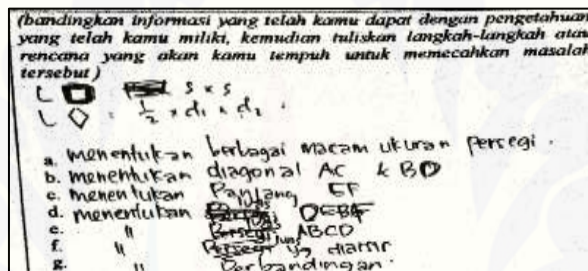 (bandingkan informasi yang telah kamu dapat dengan pengetahuan
yang telah kamu miliki, kemudian tuliskan langkah-langkah atau
rencana yang akan kamu tempuh untuk memecahkan masalah
tersebut)
L □ s x s
L ◇ : 1/2 x d1 x d2 .
a. menentukan berbagai macam ukuran persegi .
b. menentukan diagonal AC & BD
c. menentukan Panjang EF
d. menentukan DEBF
e. " Persegi ABCD
f. " luas yg diarsir
g. " Perbandingan .